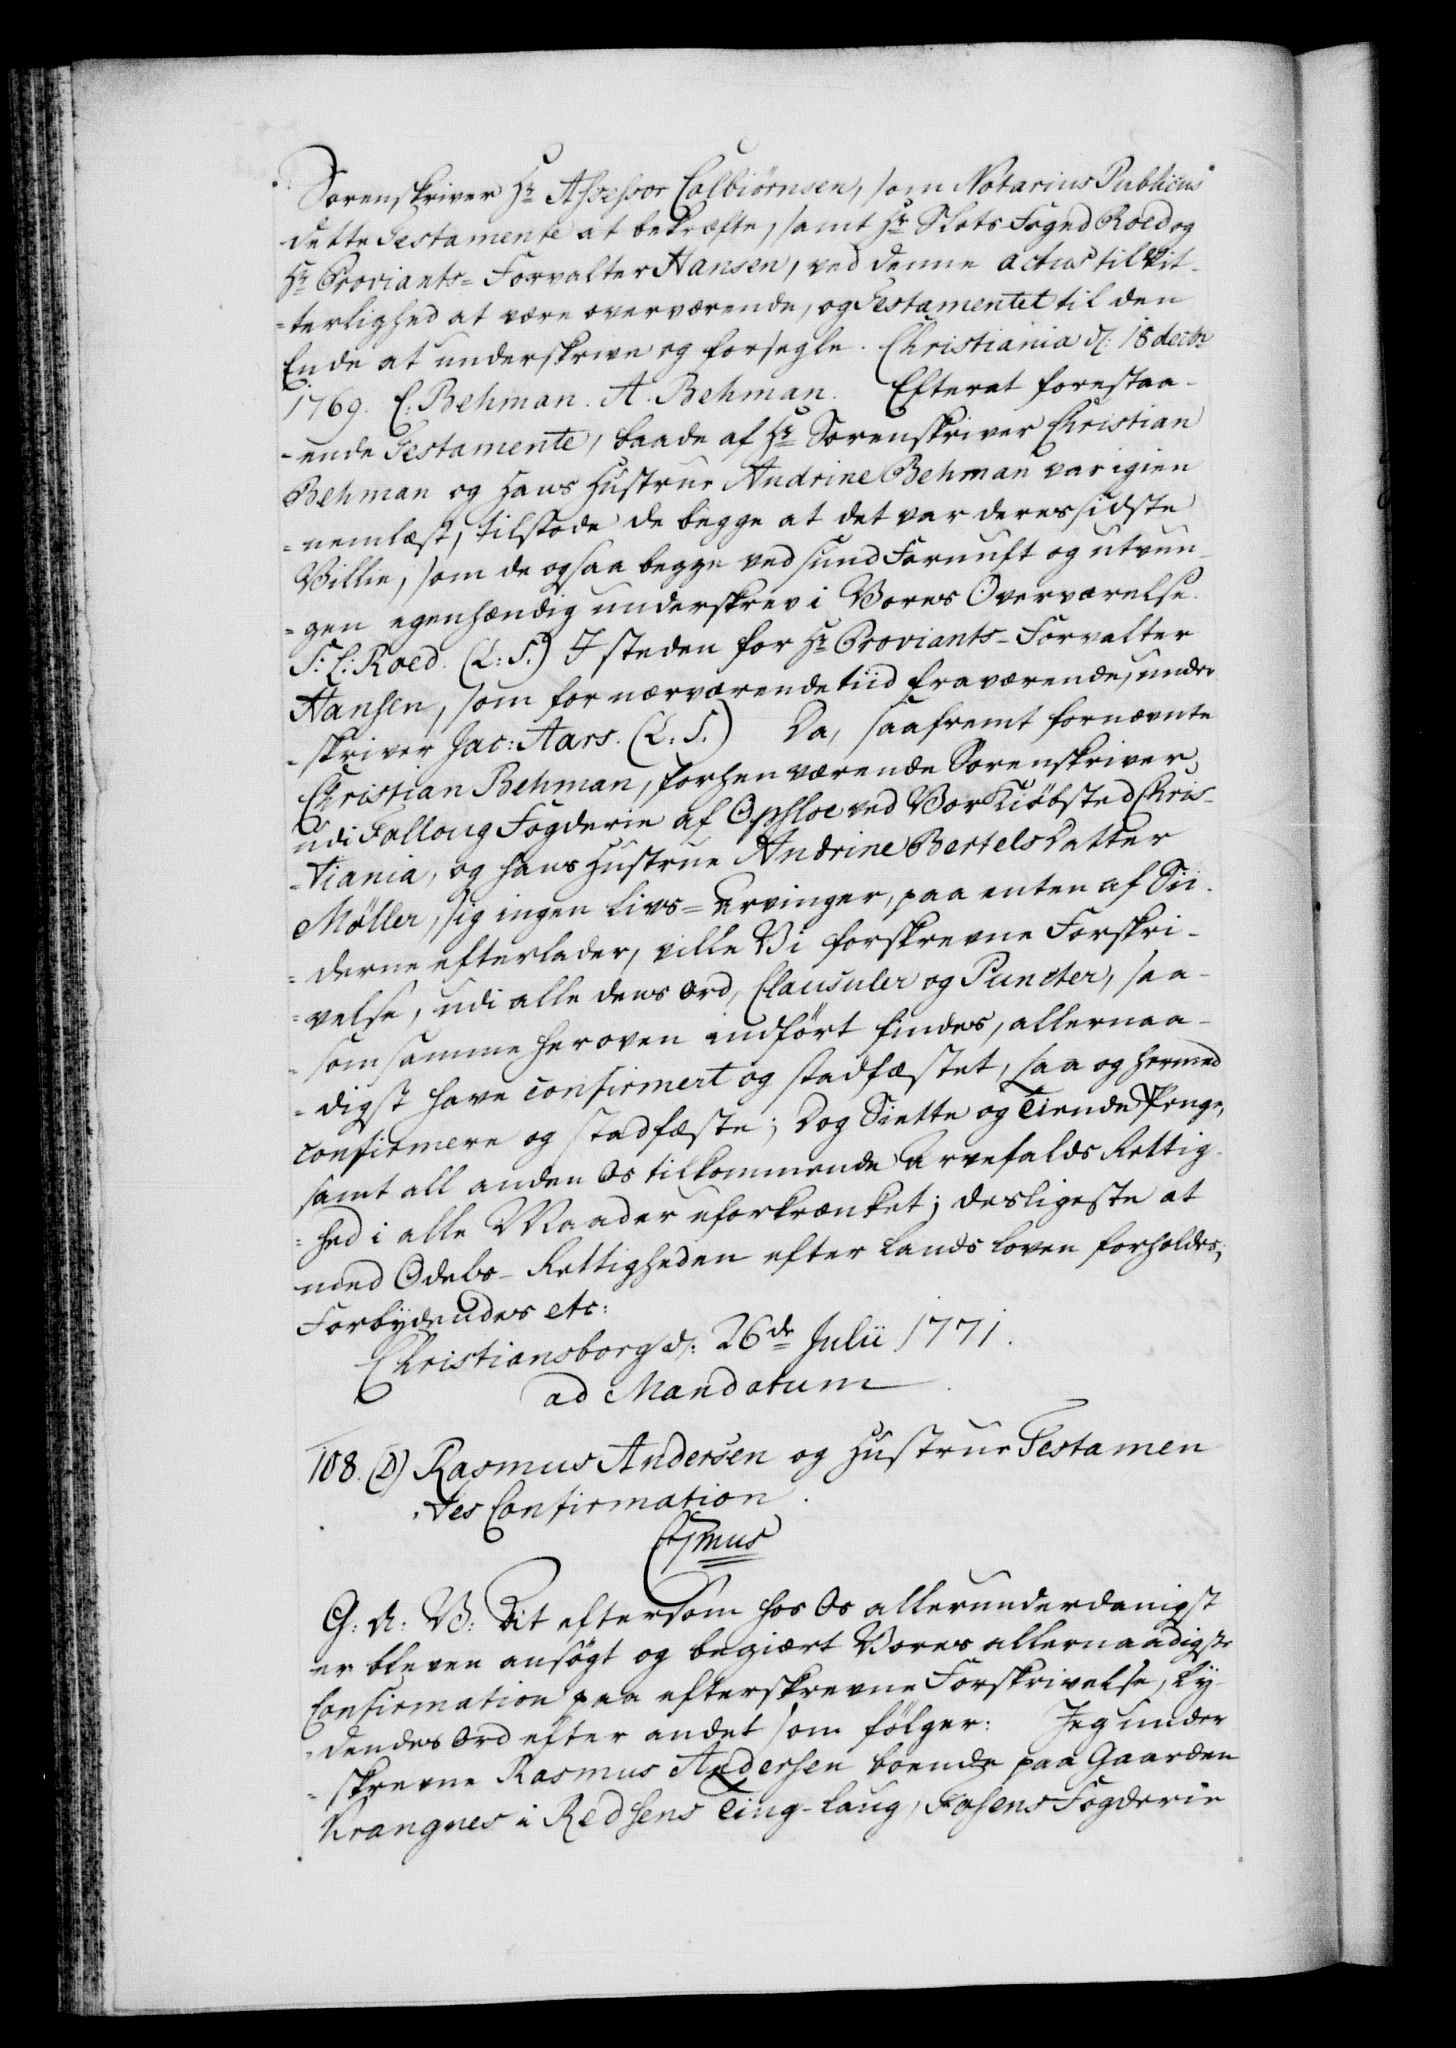 Sorenskriver Hr Assessor Colbiørnsen, som Notarius Publicus
dette Testamente at bekræfte, samt Hr Slots Foged Roed og
Hr Proviants-Forvalter Hansen, ved denne actus til Vit-
-terlighed at være overværende, og Testamentet til den
Ende at underskrive og forsegle. Christiania d: 18 decbr
1769. C: Behman. A. Behman. Efterat forestaa-
-ende Testamente, baade af Hr Sorenskriver Christian
Behman og Hans Hustrue Andrine Behman var igien
-nemlæst, tilstode de begge at det var deres sidste
Villie, som de ogsaa begge ved sund Fornuft og utvun-
-gen egenhændig underskrev i Vores Overværelse.
S: C: Roed. (L: S.) I steden for Hr Proviants-Forvalter
Hansen, som for nærværende tiid fraværende, under
-skriver Jac: Aars. (L: S.) Da, saafremt fornævnte
Christian Behman, forhen værende Sorenskriver
udi Folloug Fogderie af Opsloe ved Vor Kiøbsted Chris-
-tiania, og hans Hustrue Andrine Bertels Datter
Møller, sig ingen Livs-Arvinger, paa enten af Sii-
-derne efterlader, ville Vi forskrevne Forskri-
-velse, udi alle dens Ord, Clausuler og Puncter, saa-
-som samme her oven indført findes, allernaa-
-digst have confirmert og stadfæstet, saa og hermed
confirmere og stadfæste; Dog Siette og Tiende Penge,
samt all anden Os tilkommende Arvefalds Rettig-
-hed i alle Maader uforkrænket; desligeste at
med Odels-Rettigheden efter Lands Loven forholdes;
Forbydendes etc:
Christiansborg d: 26de Julii 1771.
ad Mandatum
108. (D) Rasmus Andersen og Hustrue Testamen
-tes Confirmation.
C7mus
G: A: V: At eftersom hos Os allerunderdanigst
er bleven ansøgt og begiært Vores allernaadigste
Confirmation paa efterskrevne Forskrivelse, Ly-
-dendes Ord efter andet som følger: Jeg under
-skrevne Rasmus Andersen boende paa Gaarden
Krangnes i Redsens Ting-laug, Fosens Fogderie